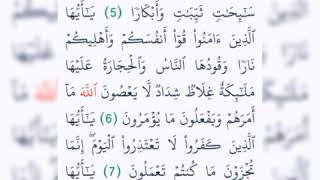 سَـٰٓئِحَـٰتٍ ثَيِّبَـٰتٍ وَأَبْكَارًا (5) يَـٰٓأَيُّهَا
ٱلَّذِينَ ءَامَنُوا۟ قُوٓا۟ أَنفُسَكُمْ وَأَهْلِيكُمْ
نَارًا وَقُودُهَا ٱلنَّاسُ وَٱلْحِجَارَةُ عَلَيْهَا
مَلَـٰٓئِكَةٌ غِلَاظٌ شِدَادٌ لَّا يَعْصُونَ ٱللَّهَ مَآ
أَمَرَهُمْ وَيَفْعَلُونَ مَا يُؤْمَرُونَ (6) يَـٰٓأَيُّهَا
ٱلَّذِينَ كَفَرُوا۟ لَا تَعْتَذِرُوا۟ ٱلْيَوْمَ ۖ إِنَّمَا
تُجْزَوْنَ مَا كُنتُمْ تَعْمَلُونَ (7) يَـٰٓأَيُّهَا